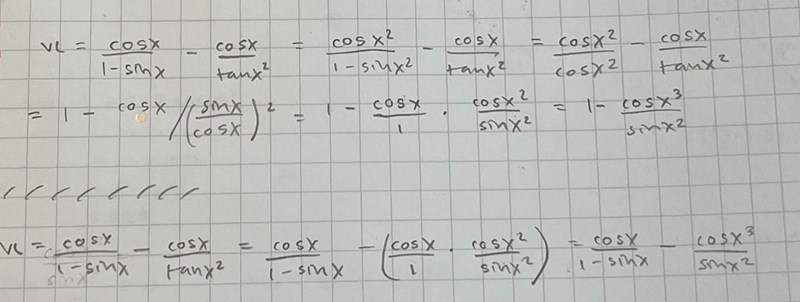 VL = cosx/(1-sinx) - cosx/tanx² = cosx²/(1-sinx²) - cosx/tanx² = cosx²/cosx² - cosx/tanx²
= 1 - cosx/(sinx/cosx)² = 1 - cosx/1 · cosx²/sinx² = 1 - cosx³/sinx²
VL = cosx/(1-sinx) - cosx/tanx² = cosx/(1-sinx) - (cosx/1 · cosx²/sinx²) = cosx/(1-sinx) - cosx³/sinx²